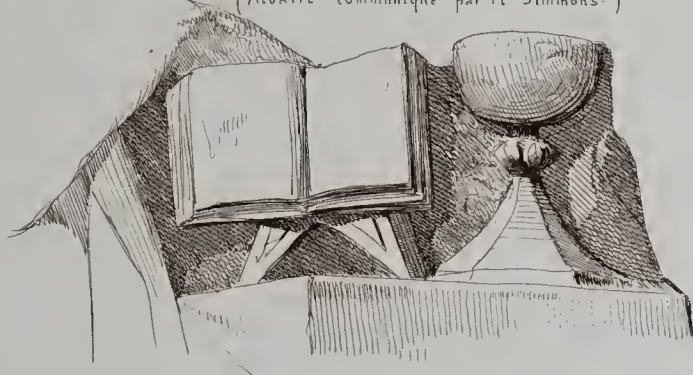 communiqué par le Simmons.)